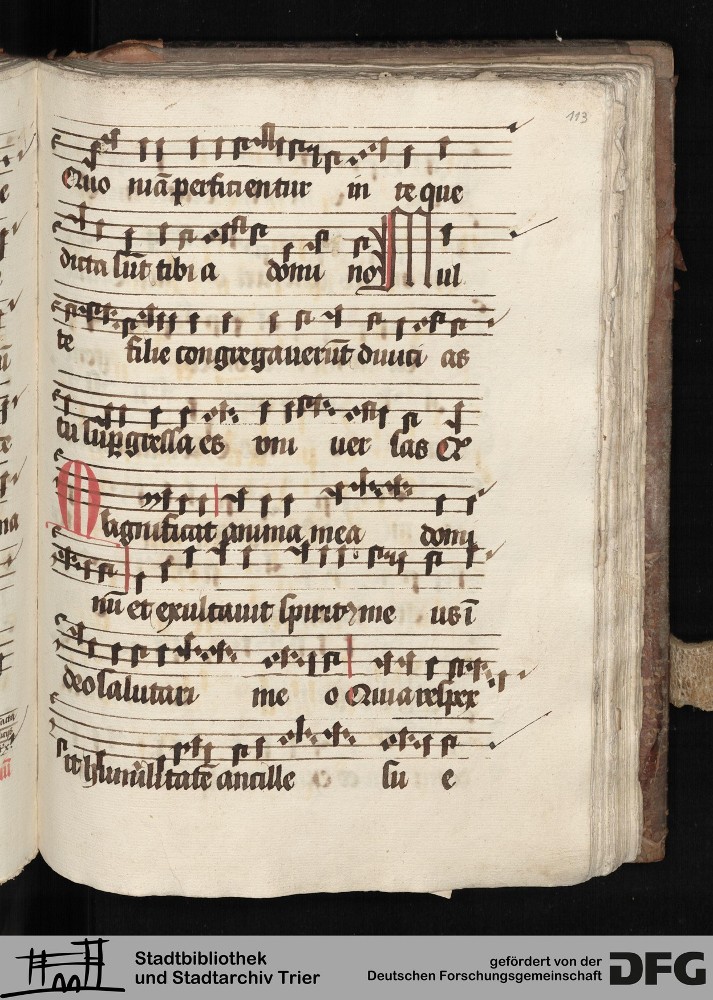 113
Quo niā perficientur in te que
dicta sūt tibi a domi no Mul
te filie congregauerūt diuici as
tu supgressa es vni uer sas Ex
Magnificat anima mea domi
nū et exultauit spiritꝰ me us ī
deo salutari me o Quia respex
it humilitatē ancille su e
Stadtbibliothek
und Stadtarchiv Trier
gefördert von der
Deutschen Forschungsgemeinschaft
DFG